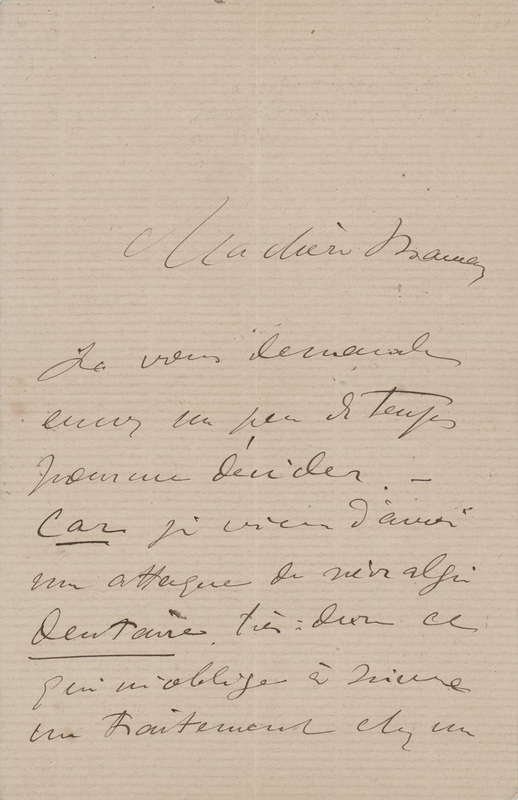 Ma chère
Je vous demande
encore un peu de temps
pour me décider. –
Car je viens d'avoir
une attaque de névralgie
Dentaire, très-dure ce
qui m'oblige à suivre
un traitement chez un